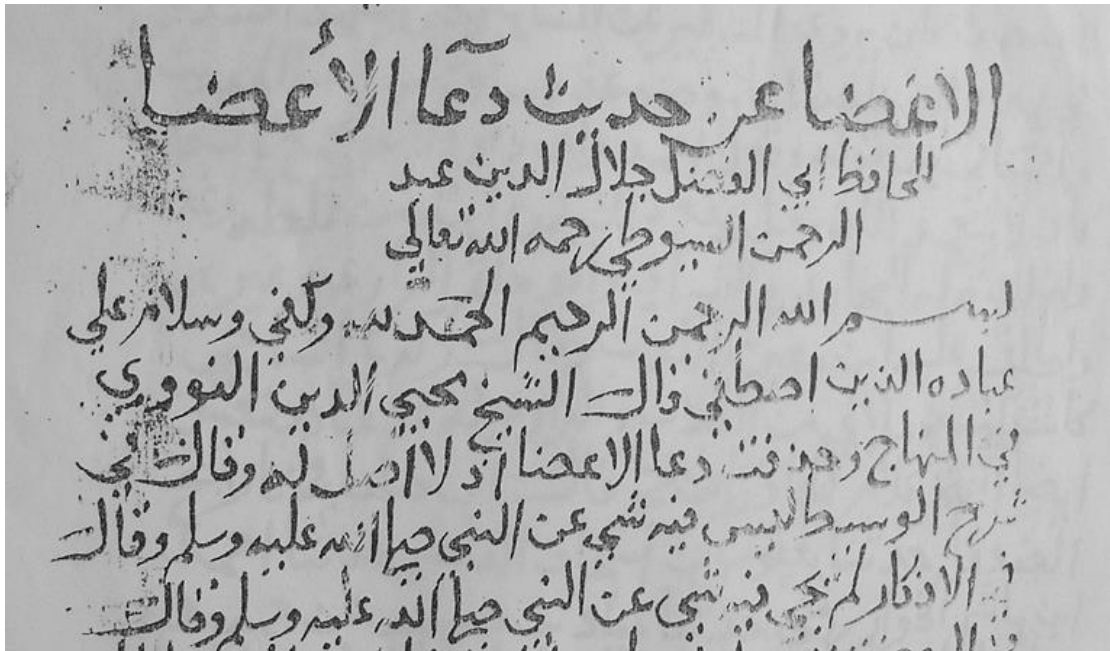 الاغضا عن حديث دعآ الأعضا
للحافظ ابي الفضل جلال الدين عبد
الرحمن السيوطي رحمه الله تعالى
بسم الله الرحمن الرحيم الحمد لله وكفى وسلام على
عباده الذين اصطفى قال الشيخ محيي الدين النووي
في المنهاج وحذفت دعا الاعضا اذ لا اصل له وقال في
شرح الوسيط ليس فيه شي عن النبي صلى الله عليه وسلم وقال
في الاذكار لم يجي فيه شي عن النبي صلى الله عليه وسلم وقال